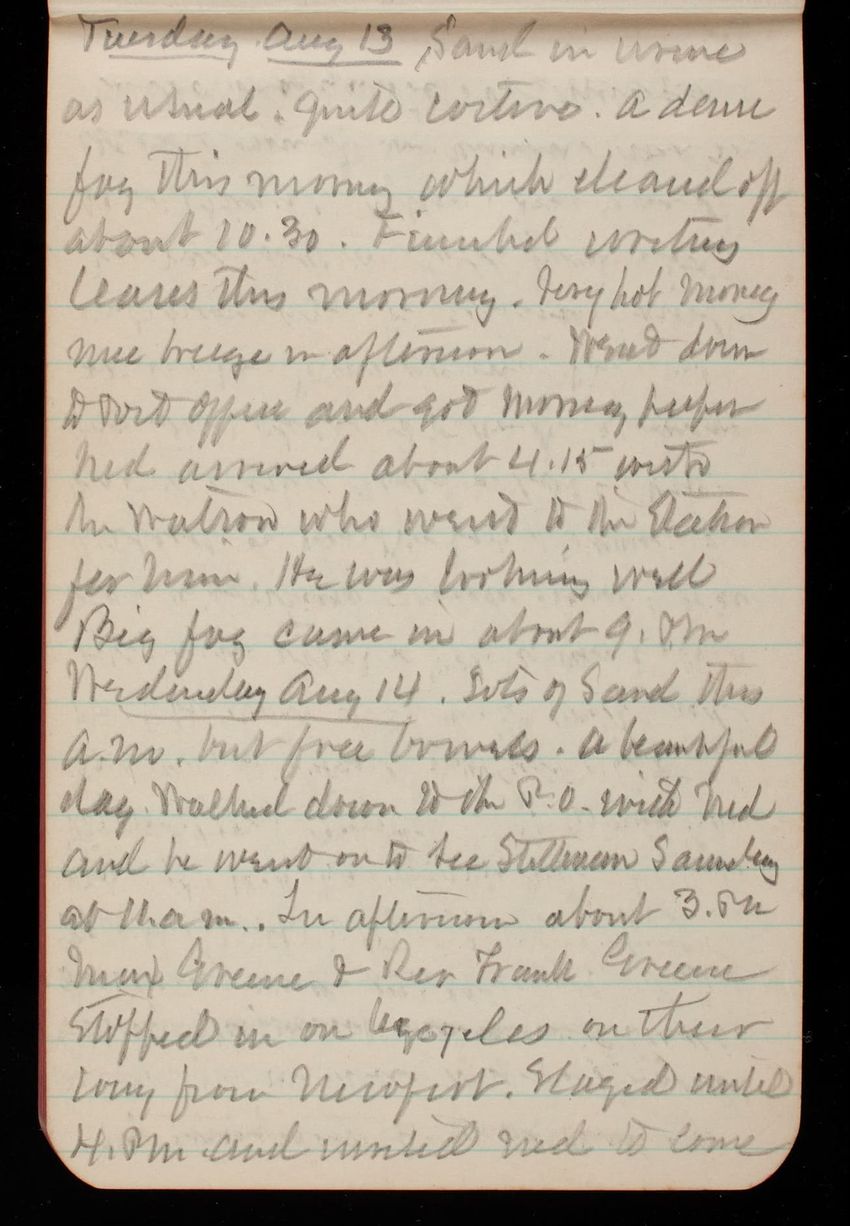 Tuesday Aug 13 Sand in urine
as usual. Quite costive. A dense
fog this morning which cleared off
about 10.30. Finished writing
leaves this morning. Very hot morning
nice breeze in afternoon. Went down
to Post Office and got morning paper
Ned arrived about 4.15 with
Mr Watson who went to the Station
for him. He was looking well
Big fog came in about 9. PM
Wednesday Aug 14. Lots of Sand this
a.m. but free bowels. A beautiful
day. Walked down to the P.O. with Ned
and he went on to see Stillman Saunders
at 11. a m.. In afternoon about 3. PM
Max Greene & Rev Frank Greene
Stopped in on bycycles on their
way from Newport. Stayed until
4. PM and invited Ned to come